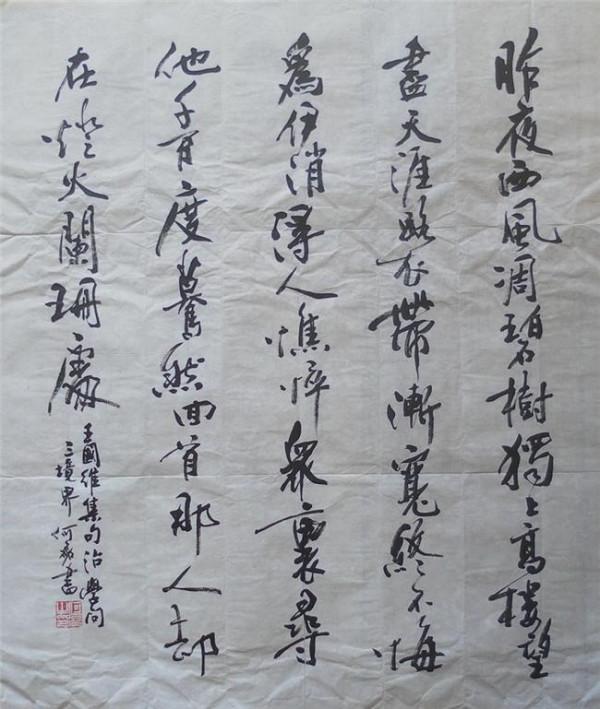 昨夜西風凋碧樹獨上高樓望
盡天涯路衣帶漸寬終不悔
爲伊消得人憔悴衆裏尋
他千百度驀然回首那人卻
在燈火闌珊處
王國維集句治學問
三境界 何書